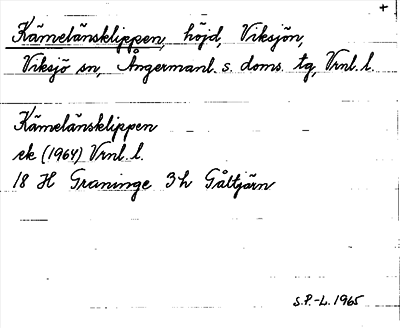 +
Kämelänsklippen, höjd, Viksjön,
Viksjö sn, Ångermanl. s. doms. tg, Vrnl. l.
Kämelänsklippen
ek (1964) Vrnl. l.
18 H Graninge 3h Gåltjärn
S.P.-L. 1965